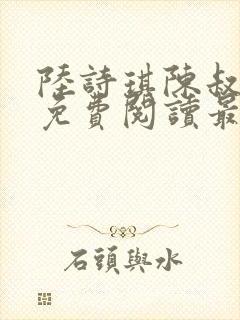 陸詩琪陳叔
免費閱讀最
石頭與水